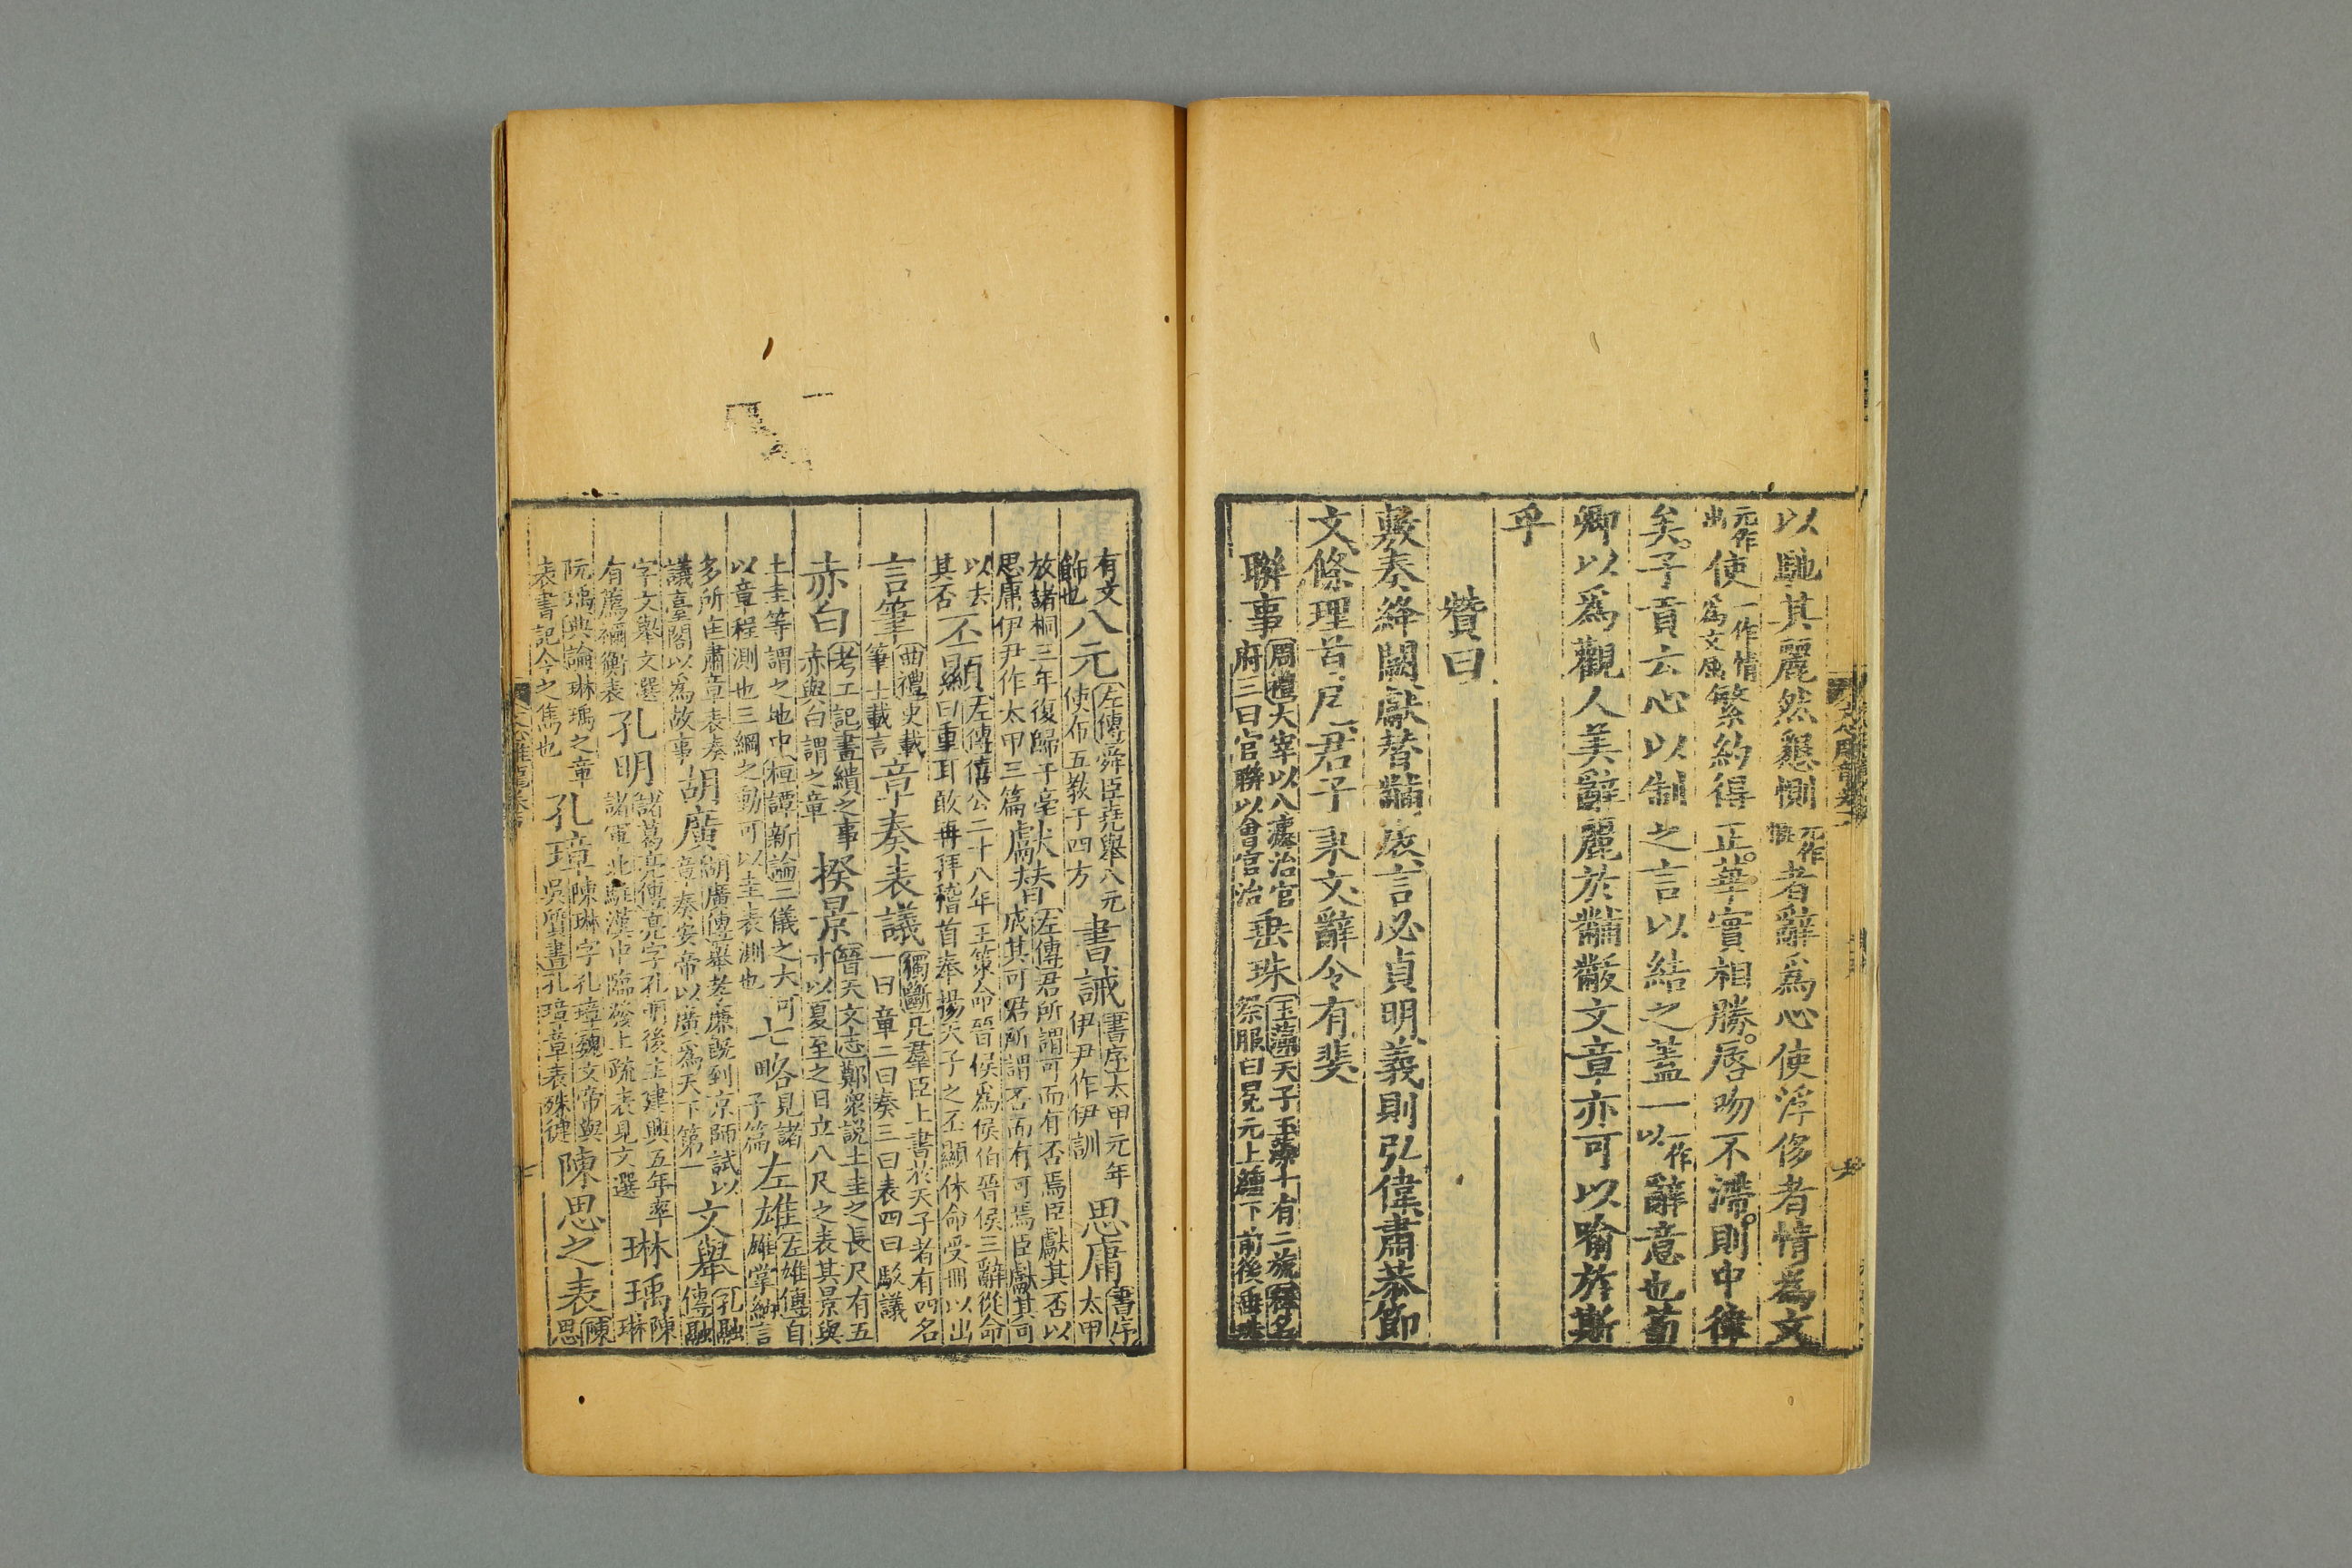 以馳其麗然懇惻元作愜者辭爲心使浮侈者情爲文
元作出使一作情爲文屈繁約得正華實相勝唇吻不滯則中律
矣子貢云心以制之言以結之蓋一一作以辭意也荀
卿以爲觀人美辭麗於黼黻文章亦可以喻於斯
乎
贊曰
敷奏絳闕獻替黼扆言必貞明義則弘偉肅恭節
文條理首尾君子秉文辭令有斐
聯事周禮大宰以八灋治官府三曰官聯以會官治垂珠玉藻天子玉藻十有二旒釋名祭服曰冕元上纁下前後垂珠
有文飾也八元左傳舜臣堯舉八元使布五教于四方書誡書序太甲元年伊尹作伊訓思庸書序太甲
放諸桐三年復歸于亳思庸伊尹作太甲三篇獻替左傳君所謂可而有否焉臣獻其否以成其可君所謂否而有可焉臣獻其可
以去其否丕顯左傳僖公二十八年王策命晉侯爲侯伯晉侯三辭從命曰重耳敢再拜稽首奉揚天子之丕顯休命受冊以出
言筆曲禮史載筆士載言章奏表議獨斷凡羣臣上書於天子者有四名一曰章二曰奏三曰表四曰駁議
赤白考工記畫繢之事赤與白謂之章揆景晉天文志鄭衆説土圭之長尺有五寸以夏至之日立八尺之表其景與
土圭等謂之地中桓譚新論三儀之大可以章程測也三綱之動可以圭表測也七略見諸子篇左雄左雄傳自雄掌納言
多所匡肅章表奏議臺閣以爲故事胡廣胡廣傳舉孝廉旣到京師試以章奏安帝以廣爲天下第一文舉孔融傳融
字文舉文選有薦禰衡表孔明諸葛亮傳亮字孔明後主建興五年率諸軍北駐漢中臨發上疏表見文選琳瑀陳琳
阮瑀典論琳瑀之章表書記今之雋也孔璋陳琳字孔璋魏文帝與吳質書孔璋章表殊健陳思之表陳思